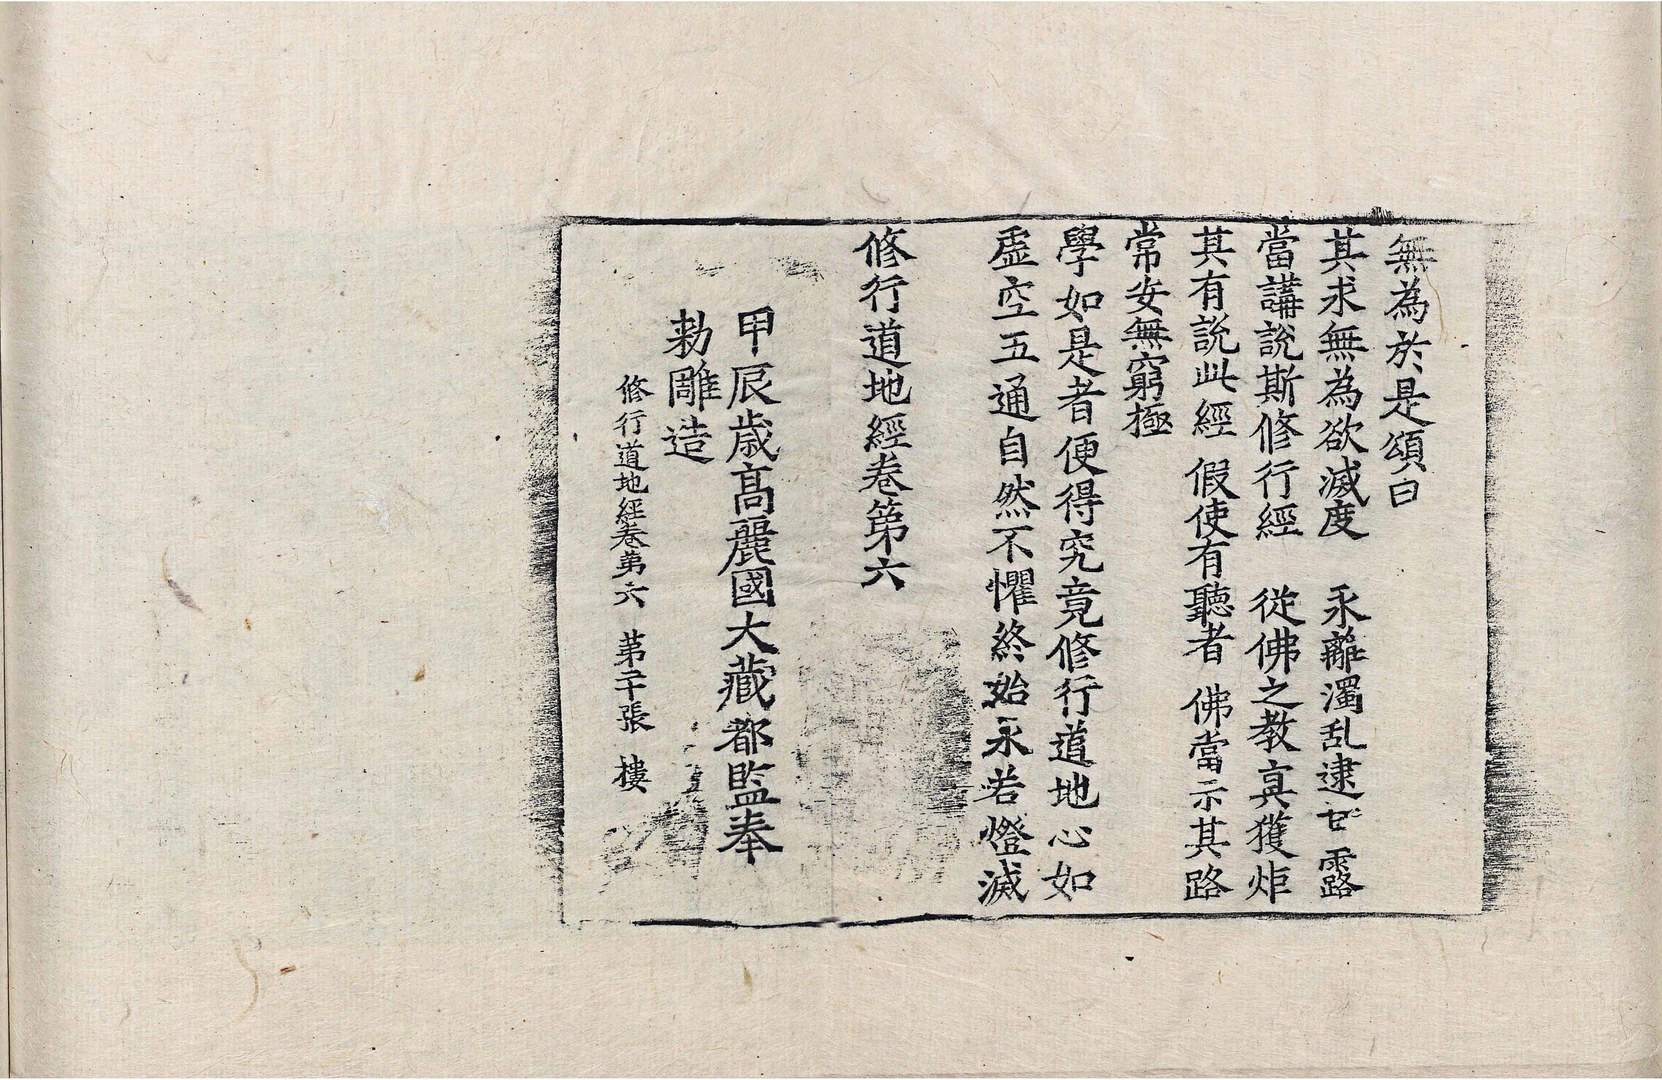 無為於是頌曰
其求無為欲滅度　永離濁乱逮甘露
當講說斯修行經　從佛之教真獲炬
其有說此經　假使有聽者　佛當示其路
常安無窮極
學如是者便得究竟修行道地心如
虛空五通自然不懼終始永若燈滅
修行道地經卷第六
甲辰歲高麗國大藏都監奉
勑雕造
修行道地經卷第六　第二十張　樓